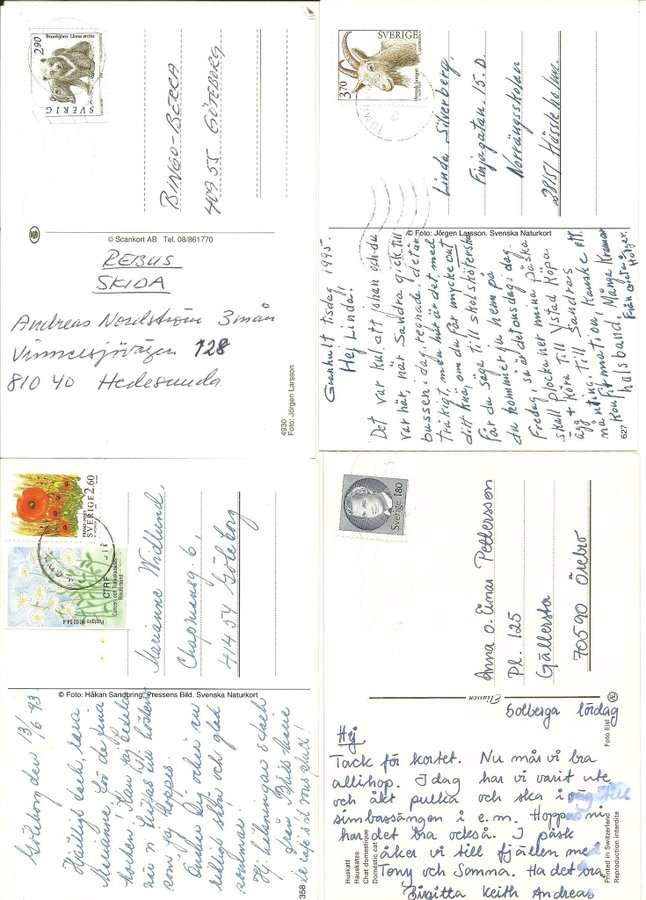 2.90
Brunbjörn Ursus arctos
SVERIGE
BINGO-BECCA
409 55 GÖTEBORG
© Scankort AB Tel. 08/861770
REBUS
SKIDA
Andreas Nordström 3mån
128
810 40 Hedesunda
4930
Foto: Jörgen Larsson
SVERIGE
3.70
Linda Silverberg,
Finjagatan. 15.D.
Norrängsskolan
28151 Hässleholm.
© Foto: Jörgen Larsson. Svenska Naturkort
Gunhult tisdag 1995.
Hej Linda!!
Det var kul, att Johan och du
var här, när Sandra gick till
bussen i dag, regnade det, är
tråkigt, men hur är det med
ditt knä, om du får mycket ont
får du säga till skolsköterskan
du kommer ju hem på
Fredag, så är det onsdag i dag.
skall plocka ner mina påska
ägg + köra till Ystad köpa
nånting, till Sandras
Konfirmation, kanske ett
halsband, Många Kramar
Från
627
SVERIGE 2.60
CTRF
Cancer- och Trafikskadades
Riksförbund
Postgiro 90 02 54-4
Marianne Widlund,
Chapmansg. 6,
414 54 Göteborg
© Foto: Håkan Sandbring, Pressens Bild. Svenska Naturkort
Göteborg den 13/6 93
Hjärtligt tack, kära
Marianne, för de fina
korten!
när vi träffas till hösten
som jag hoppas.
Önskar Dej också en
riktigt skön och glad
sommar!
358
Sverige 180
Anna o. Einar Pettersson
Pl. 125
Gällersta
705 90 Örebro
Eliasson
Foto Eial
Solberga lördag
Hej
Tack för kortet. Nu mår vi bra
allihop. I dag har vi varit ute
och åkt pulka och ska iväg till
simbassängen i e.m. Hoppas ni
har det bra också. I påsk
åker vi till fjällen med
Tony och Samma. Ha det bra
Birgitta Keith Andreas
Huskatt
Hauskatze
Chat domestique
Domestic cat
Printed in Switzerland
Reproduction interdite